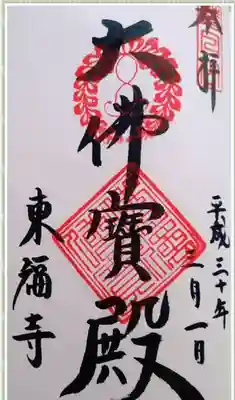 奉拝
平成三十年二月一日
大佛寳殿
東福寺